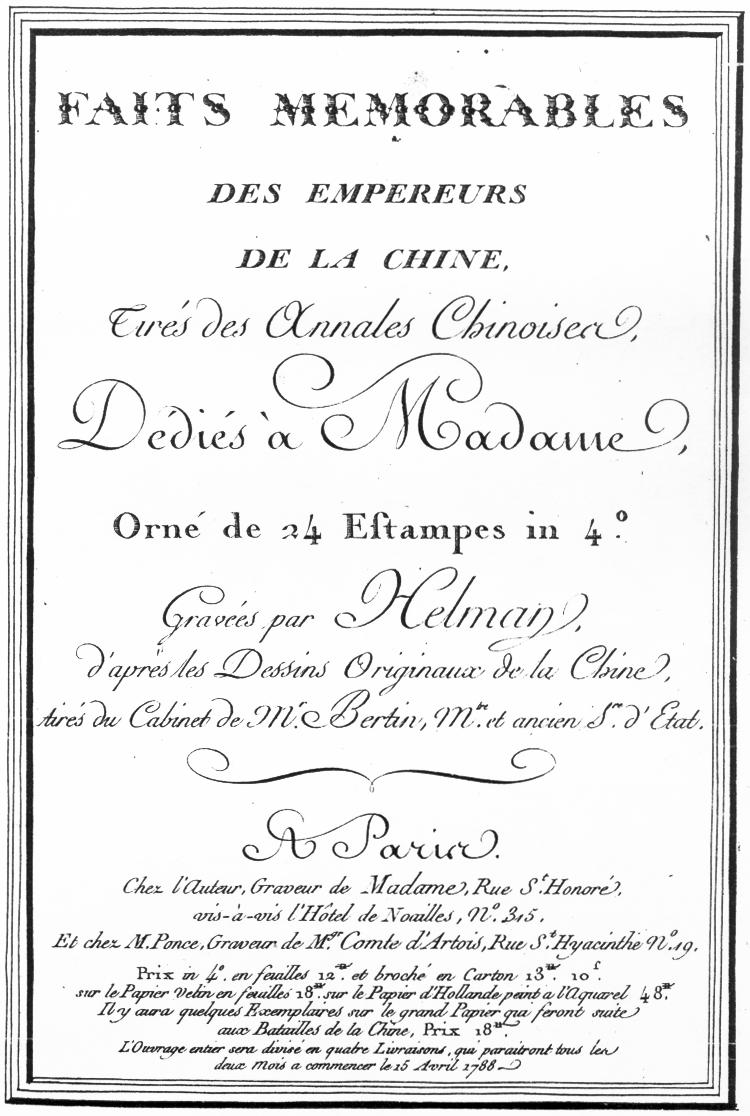 FAITS MEMORABLES
DES EMPEREURS
DE LA CHINE,
Tirés des Annales Chinoises,
Dédiés à Madame,
Orné de 24 Eſtampes in 4.º
Gravées par Helman,
d'après les Dessins Originaux de la Chine,
tirés du Cabinet de M.r Bertin, M.tre et ancien S.re d'Etat.
A Paris.
Chez l'Auteur, Graveur de Madame, Rue S.t Honoré,
vis-à-vis l'Hôtel de Noailles, N.º 315.
Et chez M. Ponce, Graveur de M.gr Comte d'Artois, Rue S.t Hyacinthe N.º 19.
Prix in 4.º en feuilles 12.tt et broché en Carton 13.tt 10.s
sur le Papier Velin en feuilles 18.tt sur le Papier d'Hollande peint a l'Aquarel 48.tt
Il y aura quelques Exemplaires sur le grand Papier qui feront suite
aux Batailles de la Chine, Prix 18.tt
L'Ouvrage entier sera divisé en quatre Livraisons, qui paraitront tous les
deux Mois a commencer le 15 Avril 1788